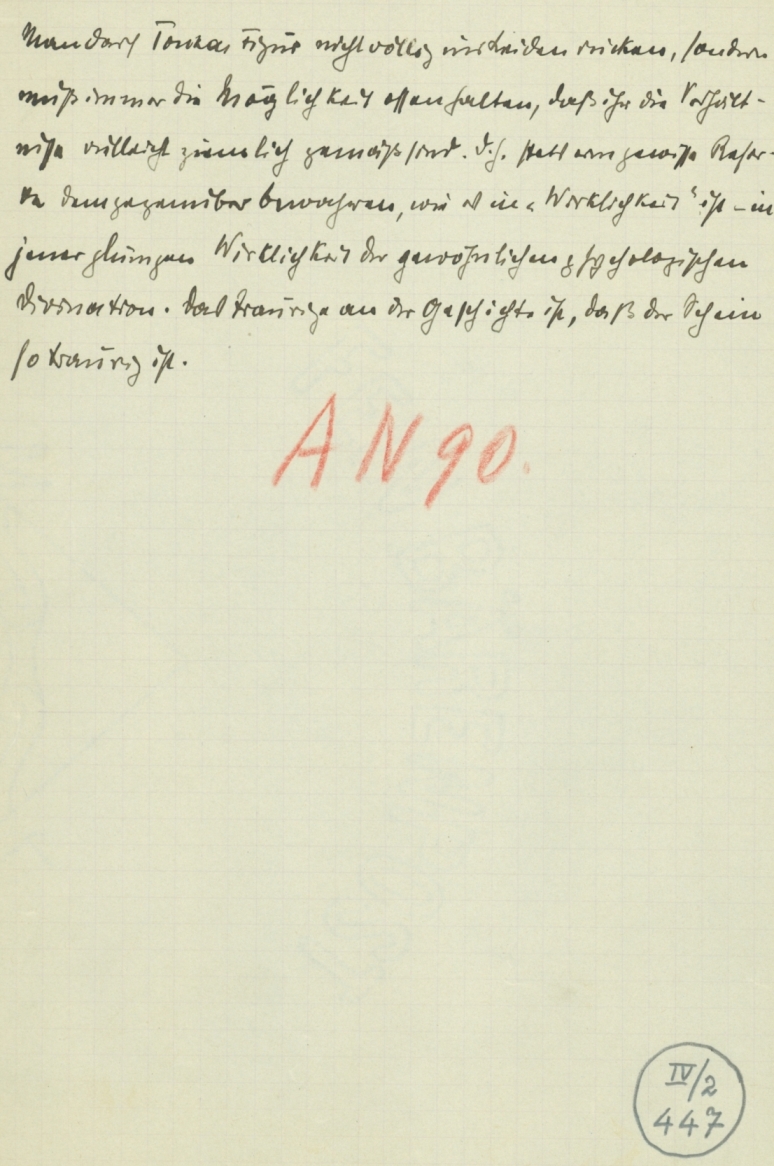 Man darf Tonkas Figur nicht völlig ins Leiden rücken, sondern
muß immer die Möglichkeit offen halten, daß ihr die Verhält-
nisse vielleicht ziemlich gemäß sind. D.h. stets eine gewisse Reser-
ve demgegenüber bewahren, wie es in „Wirklichkeit“ ist – in
jener Wirklichkeit der gewöhnlichen psychologischen
Divination. Das traurige an der Geschichte ist, daß der Schein
so traurig ist.
AN 90.
IV/2
447